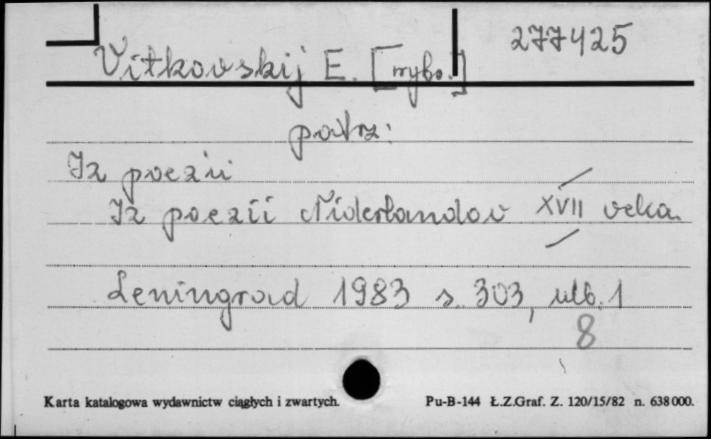 277425
Vitkovskij E. [wybr.]
patrz:
Iz poezii
Iz poezii Niderlandov XVII veka
Leningrad 1983 s. 303, ulb. 1
8
Karta katalogowa wydawnictw ciągłych i zwartych. Pu-B-144 Ł.Z.Graf. Z. 120/15/82 n. 638000.